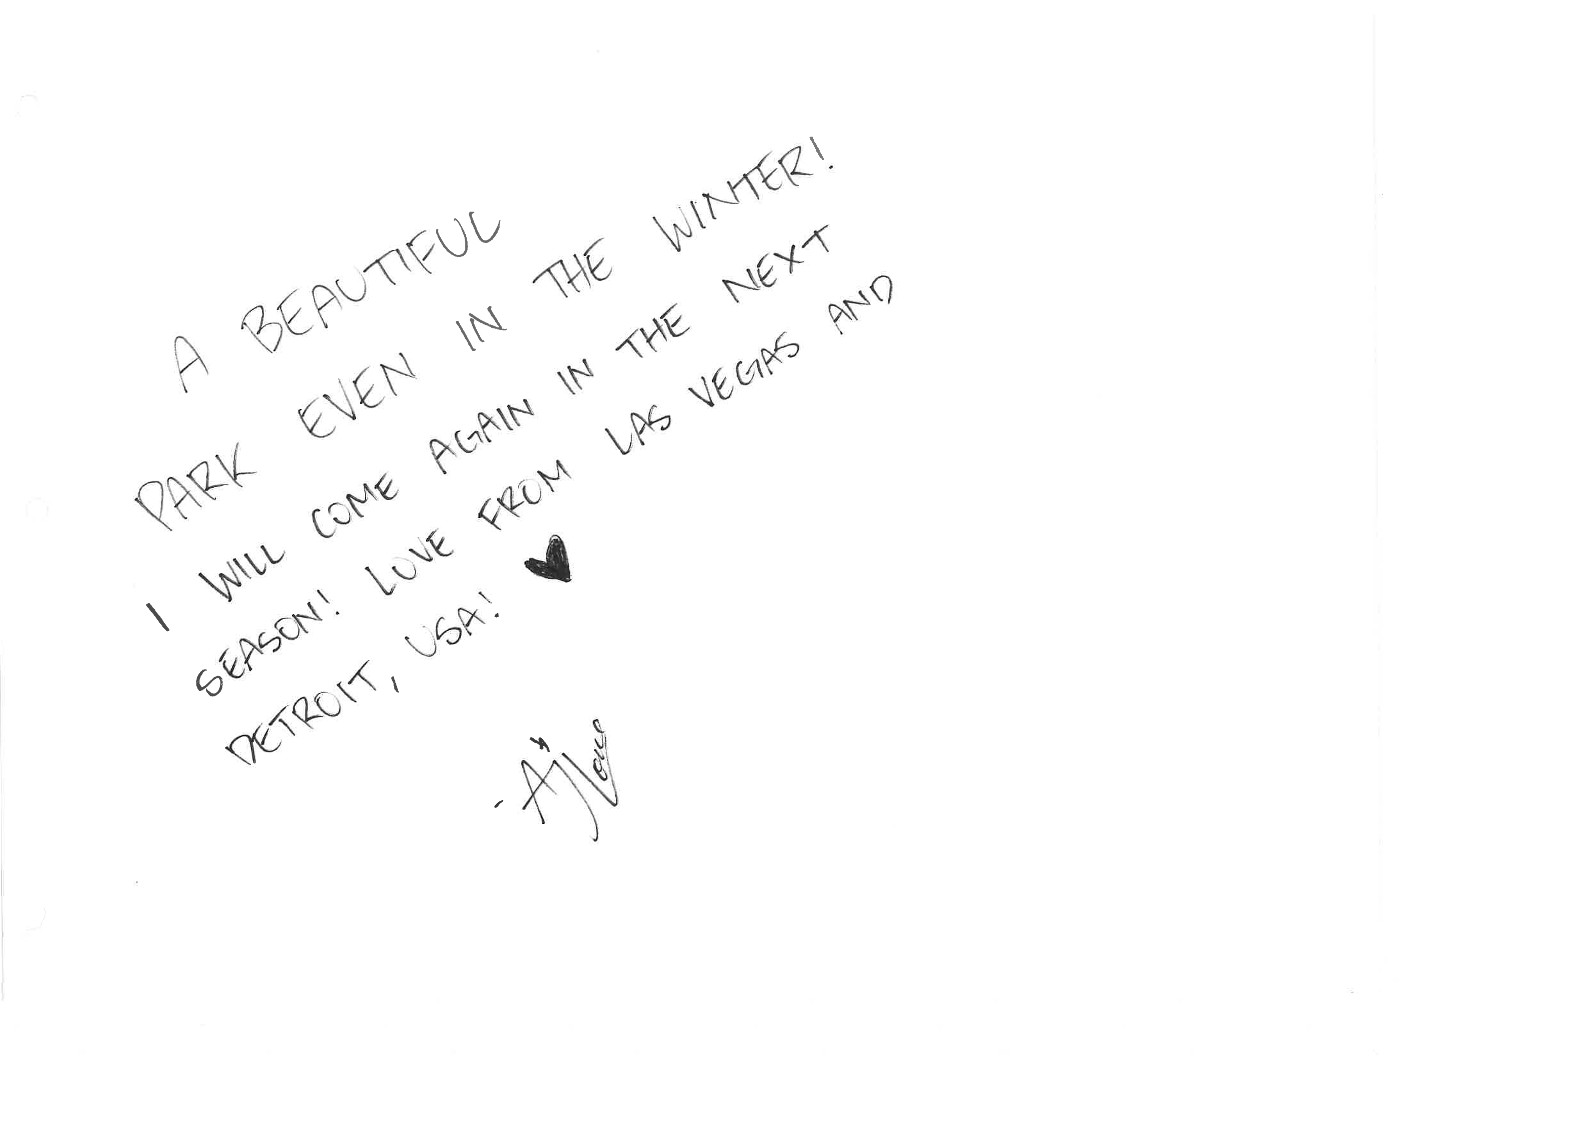 A BEAUTIFUL
PARK EVEN IN THE WINTER!
I WILL COME AGAIN IN THE NEXT
SEASON! LOVE FROM LAS VEGAS AND
DETROIT, USA! ♥
- AJ